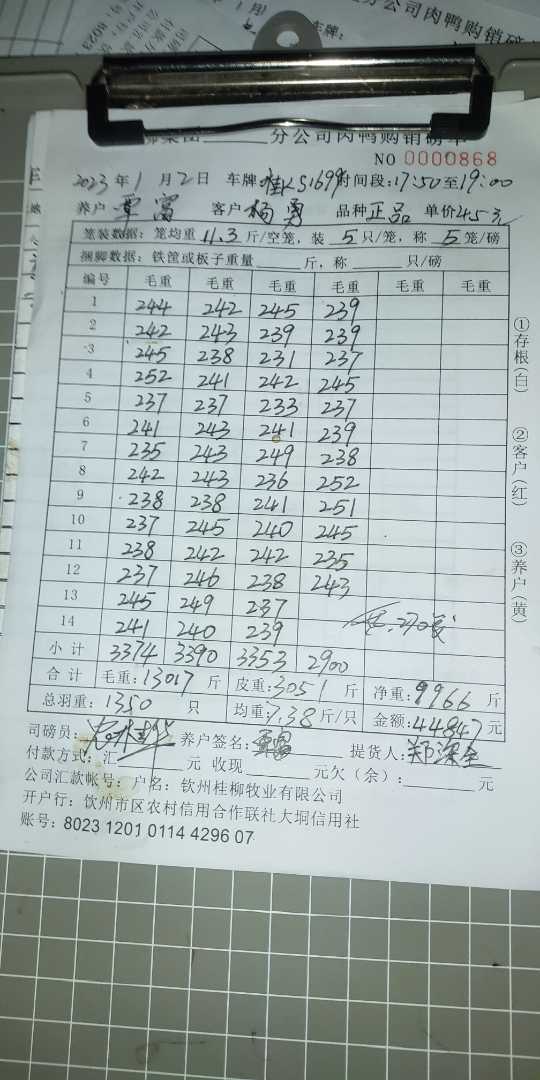 分公司肉鸭购销磅
车牌:
分公司肉鸭购销磅单
NO 0000868
2023年1月2日 车牌桂KS1699时间段:17:50至19:00
养户 覃富 客户 杨勇 品种 正品 单价4.5元
笼装数据: 笼均重 11.3 斤/空笼, 装 5 只/笼, 称 5 笼/磅
捆脚数据: 铁筐或板子重量 斤, 称 只/磅
编号 毛重 毛重 毛重 毛重 毛重 毛重
1 244 242 245 239
2 242 243 239 239
3 245 238 231 237
4 252 241 242 245
5 237 237 233 237
6 241 243 241 239
7 235 243 249 238
8 242 243 236 252
9 238 238 241 251
10 237 245 240 245
11 238 242 242 235
12 237 246 238 243
13 245 249 237
14 241 240 239
小计 3374 3390 3353 2900
合计 毛重:13017 斤 皮重:3051 斤 净重:9966 斤
总羽重: 1350 只 均重:7.38斤/只 金额:44847元
司磅员: 养户签名: 覃富 提货人: 郑深全
付款方式: 汇 元 收现 元欠(余): 元
公司汇款帐号: 户名: 钦州桂柳牧业有限公司
开户行: 钦州市区农村信用合作联社大垌信用社
账号: 8023 1201 0114 4296 07
①存根(白)
②客户(红)
③养户(黄)